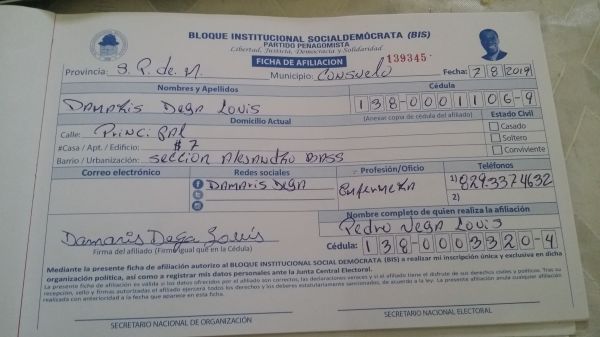 BLOQUE INSTITUCIONAL SOCIALDEMÓCRATA (BIS)
PARTIDO PEÑAGOMISTA
Libertad, Justicia, Democracia y Solidaridad
FICHA DE AFILIACION 139345
Provincia: S. P. de M. Municipio: CONSUELO Fecha: 2 8 2019
Nombres y Apellidos Cédula
DAMARIS DEGA LOUIS 138-0001106-9
Domicilio Actual (Anexar copia de cédula del afiliado) Estado Civil
Calle: PRINCIPAL Casado
#Casa / Apt. / Edificio: #7 Soltero
Barrio / Urbanización: SECCION ALEJANDRO BASS Conviviente
Correo electrónico Redes sociales Profesión/Oficio Teléfonos
DAMARIS DEGA ENFERMERA 1) 829.337.4632
2)
Nombre completo de quien realiza la afiliación
Pedro Vega Louis
Damaris Dega Louis
Firma del afiliado (Firma igual que en la Cédula) Cédula: 138-0003320-4
Mediante la presente ficha de afiliación autorizo al BLOQUE INSTITUCIONAL SOCIAL DEMÓCRATA (BIS) a realizar mi inscripción única y exclusiva en dicha
organización política, así como a registrar mis datos personales ante la Junta Central Electoral.
La presente ficha de afiliación es válida si los datos ofrecidos por el afiliado son correctos, las declaraciones veraces y si el afiliado tiene el disfrute de sus derechos civiles y políticos. Tras su
recepción, sello y firmas autorizadas el afiliado ejercerá todos los derechos y los deberes estatutariamente sancionados, de acuerdo a la ley. La presente afiliación anula cualquier afiliación
realizada con anterioridad a la fecha que aparece en esta ficha.
SECRETARIO NACIONAL DE ORGANIZACIÓN SECRETARIO NACIONAL ELECTORAL